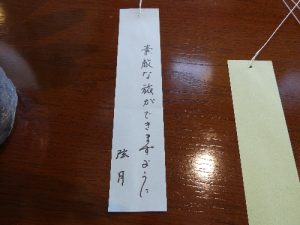 素敵な旅ができますように
弦月